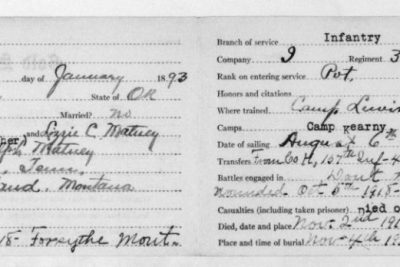 day of January 1893
State of OR
Married? no
and Lizzie C. Matney
Matney
Tenn.
Montana
Forsythe Mont.
Branch of service Infantry
Company I Regiment 3
Rank on entering service Pvt.
Honors and citations
Where trained Camp Lewis
Camps Camp Kearny
Date of sailing August 6th
Transfers from Co H, 157th Inf
Battles engaged in Don't
Wounded Oct 5th 1918
Casualties (including taken prisoner) Died o
Died, date and place Nov. 2nd 191
Place and time of burial Nov 4th 19